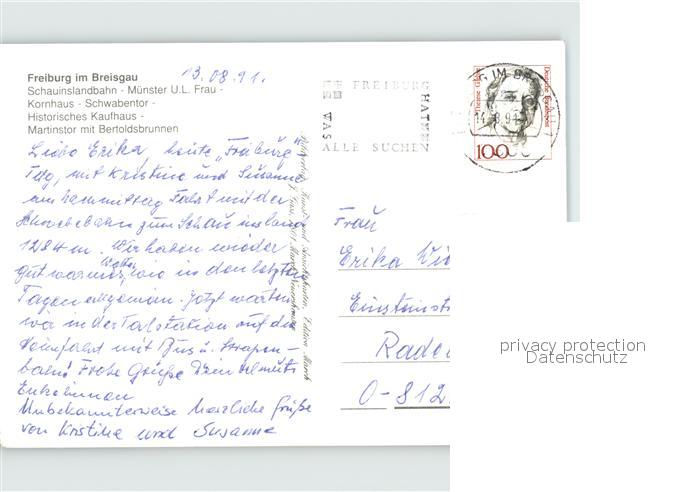 Freiburg im Breisgau
Schauinslandbahn - Münster U.L. Frau -
Kornhaus - Schwabentor -
Historisches Kaufhaus -
Martinstor mit Bertoldsbrunnen
13.08.91.
FREIBURG
HAT
WAS
ALLE SUCHEN
G. IM BR
Therese Giehse
Deutsche Bundespost
100
Liebe Erika, heute "Freiburg"
Tag, mit Kristina und Susanne
am Nachmittag Fahrt mit der
Schwebebahn zum Schauinsland
1284 m. Wir haben wieder
gut warmes Wetter, wie in den letzten
Tagen allgemein. Jetzt warten
wir in der Talstation auf die
Heimfahrt mit Bus u. Strassen-
bahn! Frohe Grüße Dein Helmut
Enkelinnen
Unbekannterweise herzliche Grüße
von Kristina und Susanne
Frau
Erika
Einsteinstr
Rade
O-812
privacy protection
Datenschutz